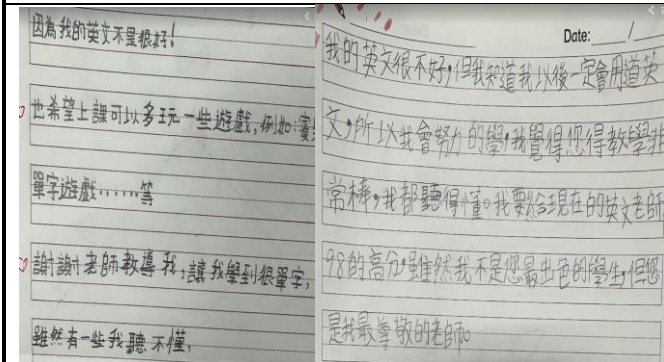 因為我的英文不是很好!
也希望上課可以多玩一些遊戲,例如:賓
單字遊戲……等
謝謝老師教導我,讓我學到很單字,
雖然有一些我聽不懂,
Date: /
我的英文很不好,但我知道我以後一定會用道英
文,所以我會努力的學,我覺得您得教學非
常棒,我都聽得懂。我要給現在的英文老師
98的高分,雖然我不是您最出色的學生,但您
是我最尊敬的老師。